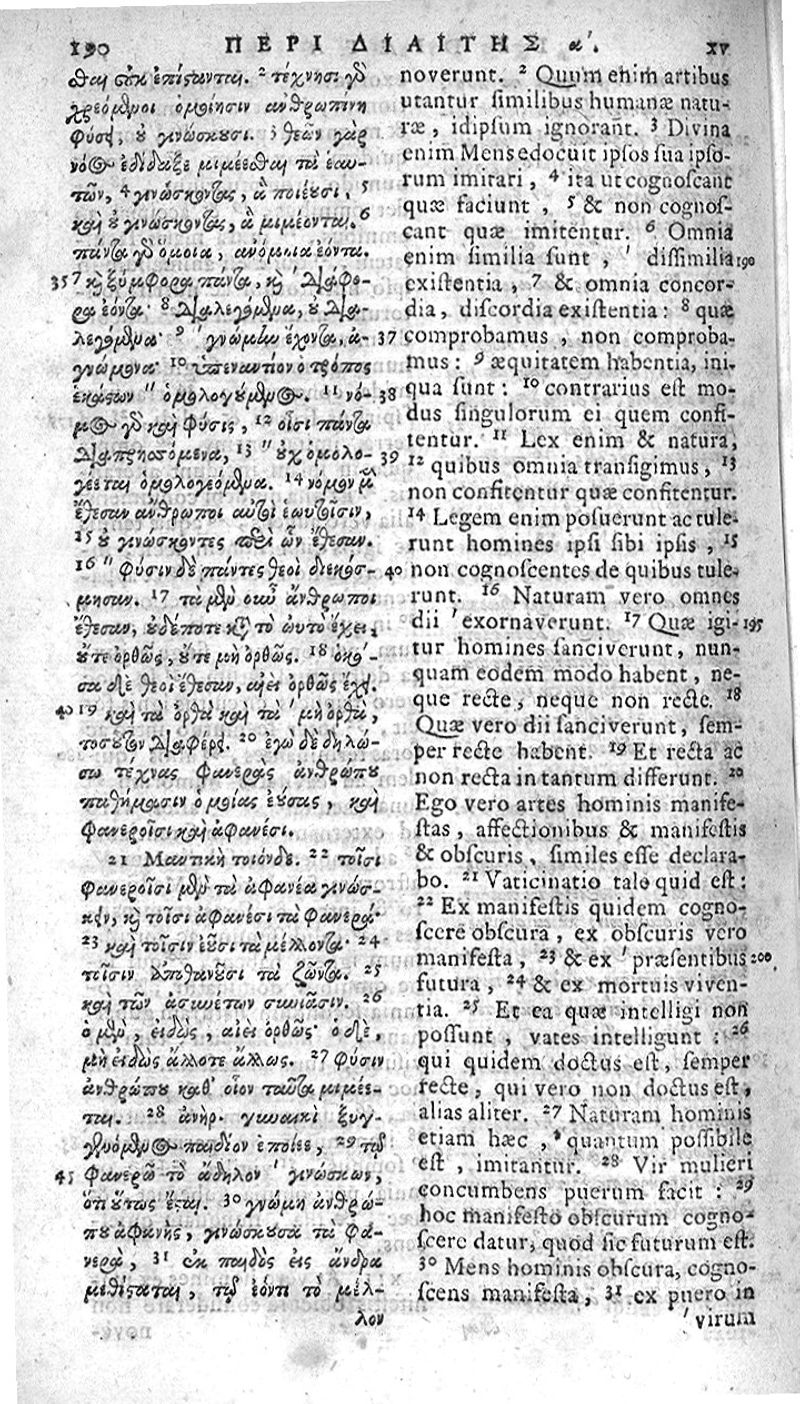 190 ΠΕΡΙ ΔΙΑΙΤΗΣ α΄. XV
θαι οὐκ ἐπίστανται. 2 τέχνησι γὸ
χρεόμενοι ὁμοίῃσιν ἀνθρωπίνῃ
φύσει, οὐ γινώσκουσι. 3 θεῶν γὰρ
νόος ἐδίδαξε μιμέεσθαι τὰ ἑαυ-
τῶν, 4 γινώσκοντας, ἃ ποιέουσι, 5
καὶ οὐ γινώσκοντας, ἃ μιμέονται. 6
πάντα γὸ ὅμοια, ἀνόμοια ἐόντα.
35 7 καὶ ξύμφορα πάντα, καὶ ' διάφο-
ρα ἐόντα· 8 διαλεγόμενα, οὐ δια-
λεγόμενα· 9 ' γνώμην ἔχοντα, ἀ-
γνώμονα· 10 ὑπεναντίον ὁ τρόπος
ἑκάστων " ὁμολογούμενος. 11 νό-
μος γὸ καὶ φύσις, 12 οἷσι πάντα
διαπρησσόμενα, 13 " οὐχ ὁμολο-
γέεται ὁμολογεόμενα. 14 νόμον μὲν
ἔθεσαν ἄνθρωποι αὐτοὶ ἑωυτοῖσιν,
15 οὐ γινώσκοντες περὶ ὧν ἔθεσαν.
16 " φύσιν δὲ πάντες θεοὶ διεκόσ-
μησαν. 17 τὰ μὲν οὖν ἄνθρωποι
ἔθεσαν, οὐδέποτε κτ τὸ ὠυτὸ ἔχει,
οὔτε ὀρθῶς, οὔτε μὴ ὀρθῶς. 18 ὁκό-
σα δὲ θεοὶ ἔθεσαν, αἰεὶ ὀρθῶς ἔχει.
40 19 καὶ τὰ ὀρθὰ καὶ τὰ ' μὴ ὀρθὰ,
τοσοῦτον διαφέρει. 20 ἐγὼ δὲ δηλώ-
σω τέχνας φανερὰς ἀνθρώπου
παθήμασιν ὁμοίας ἐούσας, καὶ
φανεροῖσι καὶ ἀφανέσι.
21 Μαντικὴ τοιόνδε. 22 τοῖσι
φανεροῖσι μὲν τὰ ἀφανέα γινώσ-
κειν, καὶ τοῖσι ἀφανέσι τὰ φανερά·
23 καὶ τοῖσιν ἐοῦσι τὰ μέλλοντα· 24
τοῖσιν ἀποθανοῦσι τὰ ζῶντα. 25
καὶ τῶν ἀσυνέτων συνιᾶσιν. 26
ὁ μὲν, εἰδὼς, αἰεὶ ὀρθῶς· ὁ δὲ,
μὴ εἰδὼς ἄλλοτε ἄλλως. 27 φύσιν
ἀνθρώπου καθ' οἷον ταῦτα μιμέε-
ται. 28 ἀνὴρ γυναικὶ ξυγ-
γενόμενος παιδίον ἐποίεε, 29 τῷ
45 φανερῷ τὸ ἄδηλον ' γινώσκων,
ὅτι οὕτως ἔσται. 30 γνώμη ἀνθρώ-
που ἀφανὴς, γινώσκουσα τὰ φα-
νερὰ, 31 ἐκ παιδὸς εἰς ἄνδρα
μεθίσταται, τῷ ἐόντι τὸ μέλ-
λον
noverunt. 2 Quum enim artibus
utantur similibus humanæ natu-
ræ, idipsum ignorant. 3 Divina
enim Mens edocuit ipsos sua ipso-
rum imitari, 4 ita ut cognoscant
quæ faciunt, 5 & non cognos-
cant quæ imitentur. 6 Omnia
enim similia sunt, ' dissimilia 190
existentia, 7 & omnia concor-
dia, discordia existentia: 8 quæ
37 comprobamus, non comproba-
mus: 9 æquitatem habentia, ini-
38 qua sunt: 10 contrarius est mo-
dus singulorum ei quem confi-
tentur. 11 Lex enim & natura,
39 12 quibus omnia transigimus, 13
non confitentur quæ confitentur.
14 Legem enim posuerunt ac tule-
runt homines ipsi sibi ipsis, 15
40 non cognoscentes de quibus tule-
runt. 16 Naturam vero omnes
dii ' exornaverunt. 17 Quæ igi- 195
tur homines sanciverunt, nun-
quam eodem modo habent, ne-
que recte, neque non recte. 18
Quæ vero dii sanciverunt, sem-
per recte habent. 19 Et recta ac
non recta in tantum differunt. 20
Ego vero artes hominis manife-
stas, affectionibus & manifestis
& obscuris, similes esse declara-
bo. 21 Vaticinatio tale quid est:
22 Ex manifestis quidem cogno-
scere obscura, ex obscuris vero
manifesta, 23 & ex ' præsentibus 200
futura, 24 & ex mortuis viven-
tia. 25 Et ea quæ intelligi non
possunt, vates intelligunt: 26
qui quidem doctus est, semper
recte, qui vero non doctus est,
alias aliter. 27 Naturam hominis
etiam hæc, * quantum possibile
est, imitantur. 28 Vir mulieri
concumbens puerum facit: 29
hoc manifesto obscurum cogno-
scere datur, quod sic futurum est.
30 Mens hominis obscura, cogno-
scens manifesta, 31 ex puero in
' virum